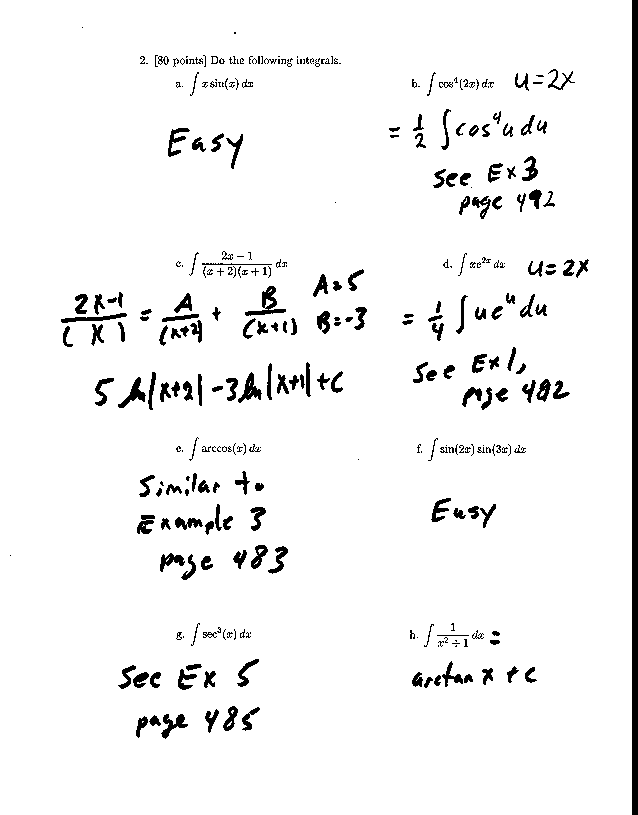 2. [80 points] Do the following integrals.
a. ∫ x sin(x) dx
Easy
b. ∫ cos⁴(2x) dx u=2x
= 1/2 ∫cos⁴u du
See Ex 3
page 492
c. ∫ (2x − 1)/((x + 2)(x + 1)) dx
(2x-1)/( X ) = A/(x+2) + B/(x+1) A=5 B=-3
5 ln|x+2| -3 ln|x+1| +c
d. ∫ xe²ˣ dx u=2x
= 1/4 ∫ueᵘdu
See Ex 1,
page 482
e. ∫ arccos(x) dx
Similar to
Example 3
page 483
f. ∫ sin(2x) sin(3x) dx
Easy
g. ∫ sec³(x) dx
See Ex 5
page 485
h. ∫ 1/(x² + 1) dx =
arctan x + c